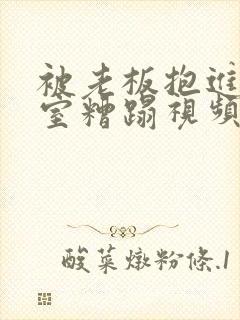 被老板抱進
室糟蹋視頻
酸菜燉粉條.1